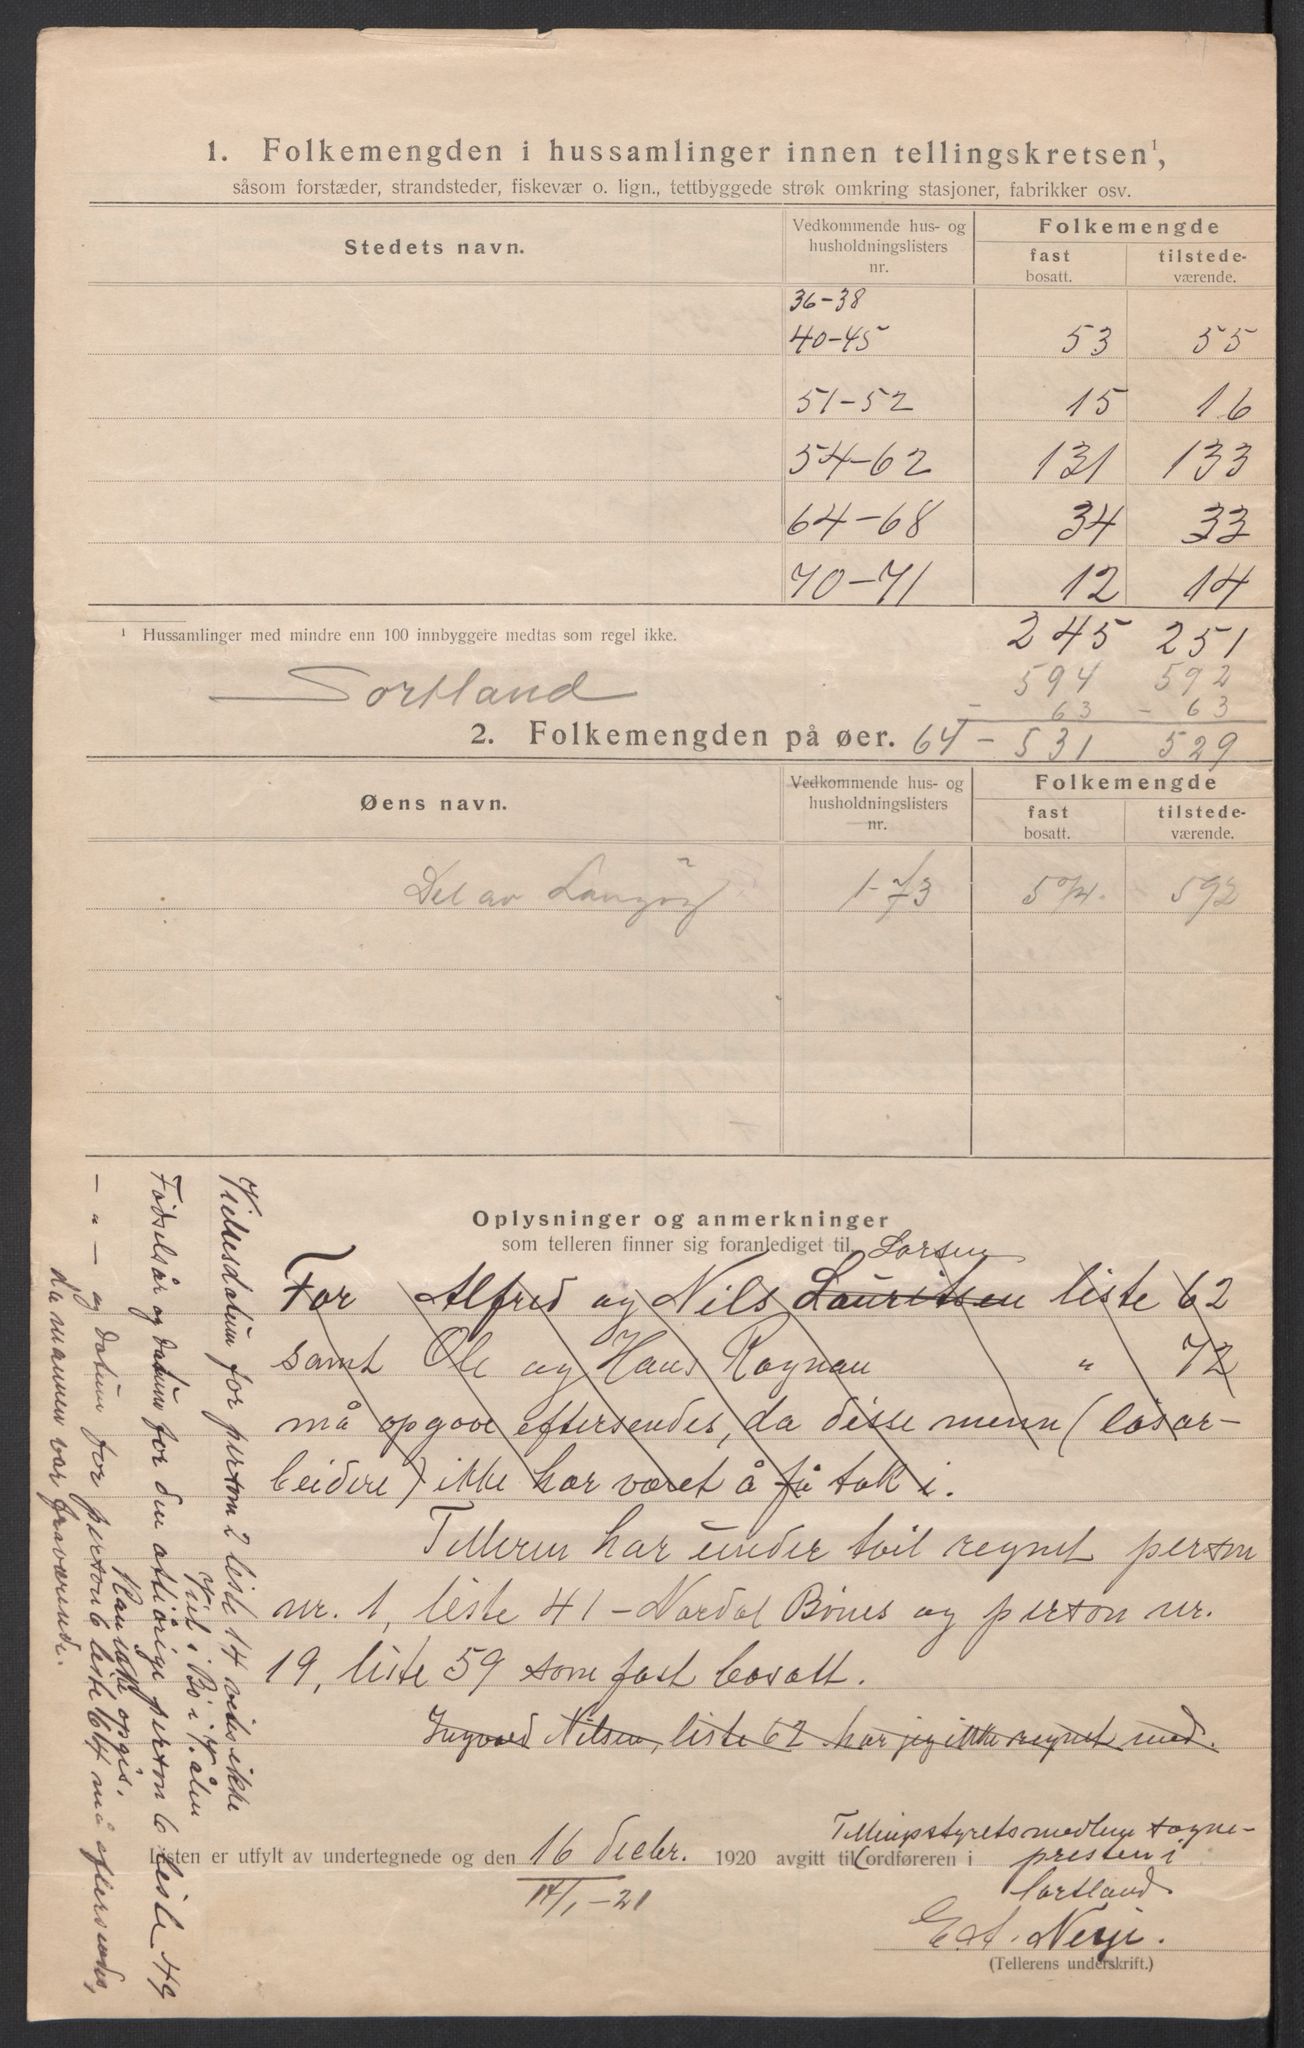 1. Folkemengden i hussamlinger innen tellingskretsen¹,
såsom forstæder, strandsteder, fiskevær o. lign., tettbyggede strøk omkring stasjoner, fabrikker osv.
Stedets navn. Vedkommende hus- og husholdningslisters nr. Folkemengde fast bosatt. tilstede-værende.
36-38
40-45 53 55
51-52 15 16
54-62 131 133
64-68 34 33
70-71 12 14
¹ Hussamlinger med mindre enn 100 innbyggere medtas som regel ikke.
245 251
Sortland 594 592
- 63 - 63
2. Folkemengden på øer. 64 - 531 529
Øens navn. Vedkommende hus- og husholdningslisters nr. Folkemengde fast bosatt. tilstede-værende.
Del av Langöy 1-73 594. 592
Oplysninger og anmerkninger
som telleren finner sig foranlediget til.
Larsen
For Alfred og Nils Lauritsen liste 62
samt Ole og Hans Rognan " 72
må opgave eftersendes, da disse menn (løsar-
beidere) ikke har været å få tak i.
Telleren har under tvil regnet person
nr. 1, liste 41 - Nordal Bönes og person nr.
19, liste 59 som fast bosatt.
Ingvald Nilsen, liste 62 har jeg ikke regnet med.
Vielsesdatum for person 2 liste 14 vites ikke
Viet i Bö i V.ålen
Fødselsår og datum for den attiårige person 6 liste 49
Kan ikke opgis.
- " - og datum for person 6 liste 64 må eftersendes,
da mannen var fraværende.
Listen er utfylt av undertegnede og den 16 decbr. 1920 avgitt til ordføreren i
Tellingsstyretsmedlem sogne-
presten i
Sortland
14/1-21
E. A. Nerje.
(Tellerens underskrift.)